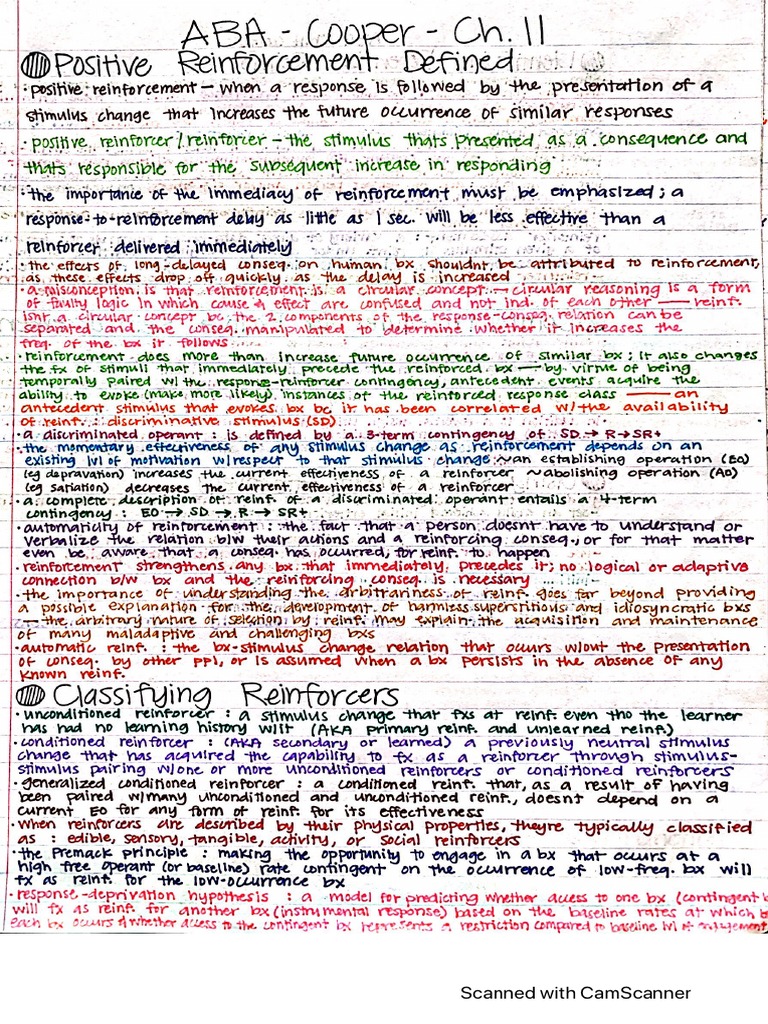 ABA - Cooper - Ch. 11
Positive Reinforcement Defined
· positive reinforcement — when a response is followed by the presentation of a
stimulus change that increases the future occurrence of similar responses
· positive reinforcer / reinforcer - the stimulus thats presented as a consequence and
thats responsible for the subsequent increase in responding
· the importance of the immediacy of reinforcement must be emphasized; a
response-to-reinforcement delay as little as 1 sec. will be less effective than a
reinforcer delivered immediately
· the effects of long-delayed conseq. on human bx shouldnt be attributed to reinforcement,
as these effects drop off quickly as the delay is increased
· a misconception is that reinforcement is a circular concept — circular reasoning is a form
of faulty logic in which cause & effect are confused and not ind. of each other — reinf.
isnt a circular concept bc the 2 components of the response-conseq. relation can be
separated and the conseq. manipulated to determine whether it increases the
freq. of the bx it follows
· reinforcement does more than increase future occurrence of similar bx; it also changes
the fx of stimuli that immediately precede the reinforced bx — by virtue of being
temporally paired w/ the response-reinforcer contingency, antecedent events acquire the
ability to evoke (make more likely) instances of the reinforced response class — an
antecedent stimulus that evokes bx bc it has been correlated w/ the availability
of reinf. : discriminative stimulus (SD)
· a discriminated operant : is defined by a 3-term contingency of SD → R → SR+
· the momentary effectiveness of any stimulus change as reinforcement depends on an
existing lvl of motivation w/ respect to that stimulus change ~ an establishing operation (EO)
(eg depravation) increases the current effectiveness of a reinforcer ~ abolishing operation (AO)
(eg satiation) decreases the current effectiveness of a reinforcer
· a complete description of reinf. of a discriminated operant entails a 4-term
contingency : EO → SD → R → SR+
· automaticity of reinforcement : the fact that a person doesnt have to understand or
verbalize the relation b/w their actions and a reinforcing conseq., or for that matter
even be aware that a conseq. has occurred, for reinf. to happen
· reinforcement strengthens any bx that immediately precedes it; no logical or adaptive
connection b/w bx and the reinforcing conseq. is necessary
· the importance of understanding the arbitrariness of reinf. goes far beyond providing
a possible explanation for the development of harmless superstitious and idiosyncratic bxs
— the arbitrary nature of selection by reinf. may explain the acquisition and maintenance
of many maladaptive and challenging bxs
· automatic reinf. : the bx-stimulus change relation that occurs w/out the presentation
of conseq. by other ppl, or is assumed when a bx persists in the absence of any
known reinf.
Classifying Reinforcers
· unconditioned reinforcer : a stimulus change that fxs at reinf. even tho the learner
has had no learning history w/it (AKA primary reinf. and unlearned reinf.)
· conditioned reinforcer : (AKA secondary or learned) a previously neutral stimulus
change that has acquired the capability to fx as a reinforcer through stimulus-
stimulus pairing w/ one or more unconditioned reinforcers or conditioned reinforcers
· generalized conditioned reinforcer : a conditioned reinf. that, as a result of having
been paired w/ many unconditioned and unconditioned reinf., doesnt depend on a
current EO for any form of reinf. for its effectiveness
· when reinforcers are described by their physical properties, theyre typically classified
as : edible, sensory, tangible, activity, or social reinforcers
· the Premack principle : making the opportunity to engage in a bx that occurs at a
high free operant (or baseline) rate contingent on the occurrence of low-freq. bx will
fx as reinf. for the low-occurrence bx
· response-deprivation hypothesis : a model for predicting whether access to one bx (contingent
will fx as reinf. for another bx (instrumental response) based on the baseline rates at which
each bx occurs & whether access to the contingent bx represents a restriction compared to baseline lvl of engagement
Scanned with CamScanner